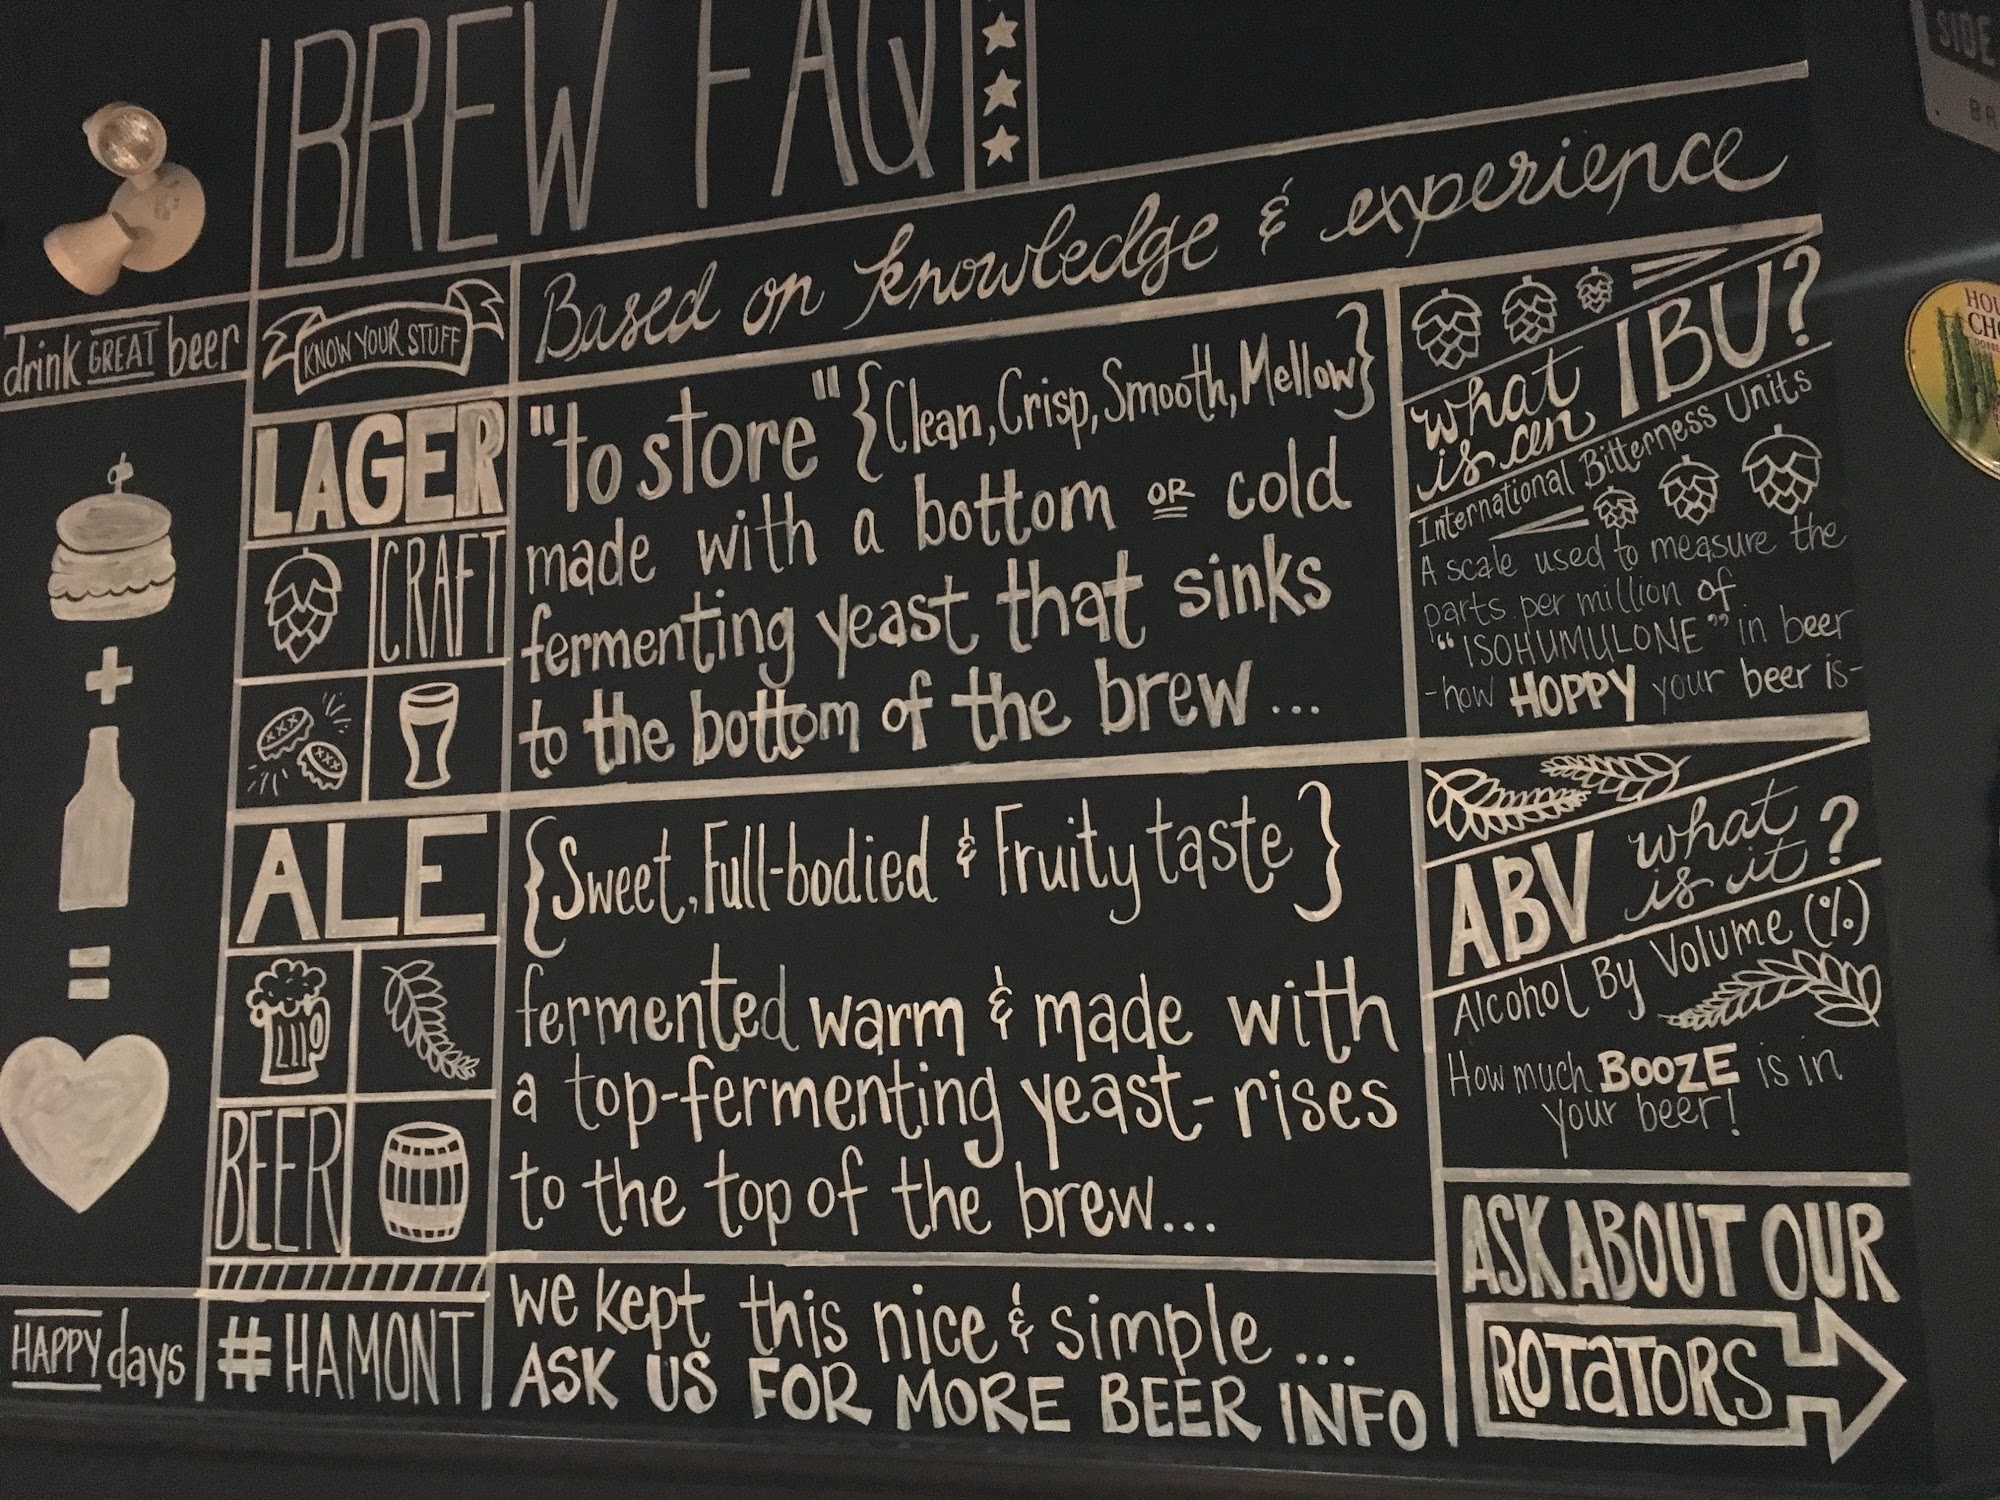 BREW FAQ
Based on knowledge & experience
drink GREAT beer
HAPPY days
KNOW YOUR STUFF
LAGER
CRAFT
"to store" {Clean, Crisp, Smooth, Mellow}
made with a bottom OR cold
fermenting yeast that sinks
to the bottom of the brew...
ALE
BEER
{Sweet, Full-bodied & Fruity taste}
fermented warm & made with
a top-fermenting yeast- rises
to the top of the brew...
#HAMONT
we kept this nice & simple...
ASK US FOR MORE BEER INFO
what
is an IBU?
International Bitterness Units
A scale used to measure the
parts per million of
"ISOHUMULONE" in beer
-how HOPPY your beer is-
ABV what
is it?
Alcohol By Volume (%)
How much BOOZE is in
your beer!
ASK ABOUT OUR
ROTATORS
SIDE